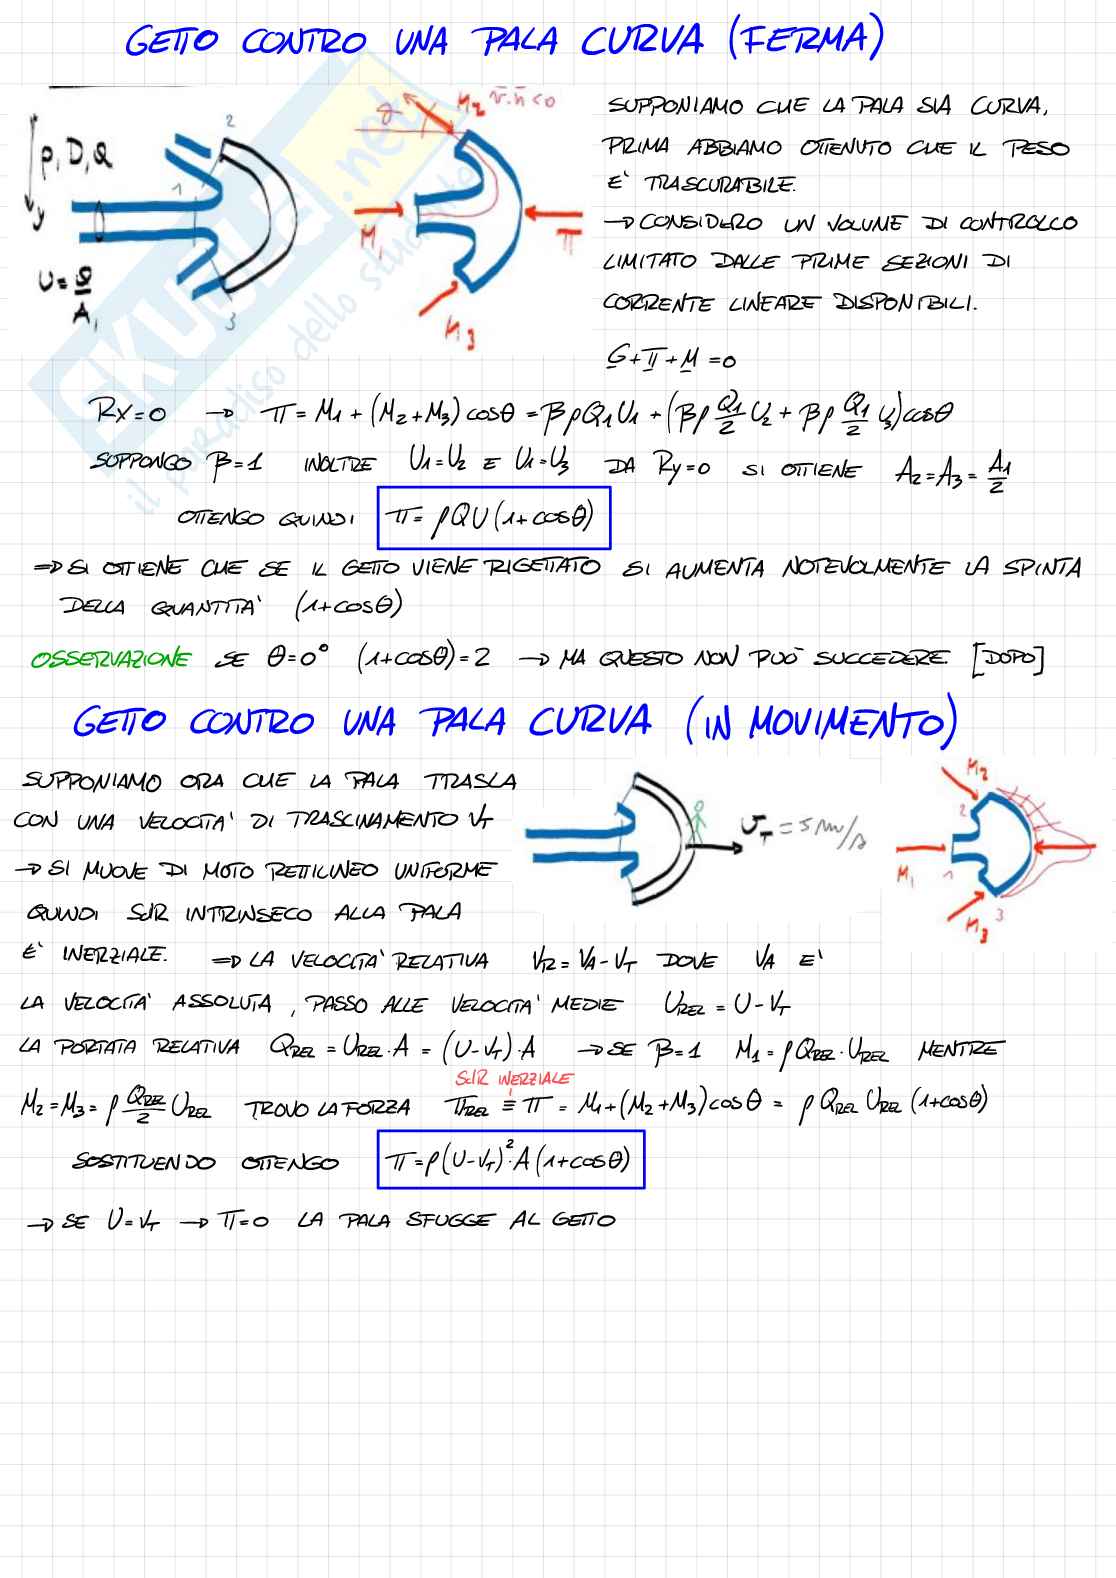 GETTO CONTRO UNA PALA CURVA (FERMA)
2
1
p, D, Q
y
U = Q/A₁
3
θ
M₂ v̄·n̄<0
M₁
Π
M₃
SUPPONIAMO CHE LA PALA SIA CURVA,
PRIMA ABBIAMO OTTENUTO CHE IL PESO
E' TRASCURABILE.
→ CONSIDERO UN VOLUME DI CONTROLLO
LIMITATO DALLE PRIME SEZIONI DI
CORRENTE LINEARE DISPONIBILI.
G+Π+M=0
Rx=0 → Π = M₁ + (M₂+M₃) cosθ = βρQ₁U₁ + (βρ Q₁/2 U₂ + βρ Q₁/2 U₃) cosθ
SUPPONGO β=1 INOLTRE U₁=U₂ E U₁=U₃ DA Ry=0 SI OTTIENE A₂=A₃=A₁/2
OTTENGO QUINDI Π = ρQU(1+cosθ)
⇒ SI OTTIENE CHE SE IL GETTO VIENE RIGETTATO SI AUMENTA NOTEVOLMENTE LA SPINTA
DELLA QUANTITA' (1+cosθ)
OSSERVAZIONE SE θ=0° (1+cosθ)=2 → MA QUESTO NON PUÒ SUCCEDERE. [DOPO]
GETTO CONTRO UNA PALA CURVA (IN MOVIMENTO)
SUPPONIAMO ORA CHE LA PALA TRASLA
CON UNA VELOCITA' DI TRASCINAMENTO V_T
→ SI MUOVE DI MOTO RETTILINEO UNIFORME
QUINDI SdR INTRINSECO ALLA PALA
E' INERZIALE. ⇒ LA VELOCITA' RELATIVA V_R=V_A-V_T DOVE V_A E'
v_T = 5 m/s
M₂
2
M₁
1
3
M₃
LA VELOCITA' ASSOLUTA, PASSO ALLE VELOCITA' MEDIE U_REL = U-V_T
LA PORTATA RELATIVA Q_REL = U_REL·A = (U-V_T)·A → SE β=1 M₁=ρQ_REL·U_REL MENTRE
SdR INERZIALE
M₂=M₃=ρ Q_REL/2 U_REL TROVO LA FORZA Π_REL ≡ Π = M₁+(M₂+M₃) cosθ = ρ Q_REL U_REL (1+cosθ)
SOSTITUENDO OTTENGO Π=ρ(U-V_T)²·A(1+cosθ)
→ SE U=V_T → Π=0 LA PALA SFUGGE AL GETTO
skuola.net
il paradiso dello studente